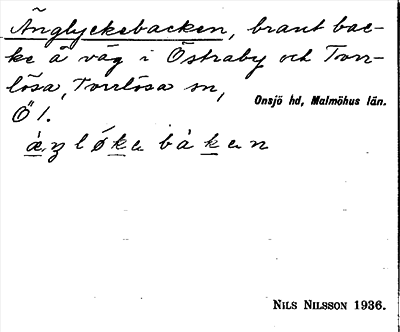 Änglyckebacken, brant bac-
ke å väg i Östraby och Torr-
lösa, Torrlösa sn,
Onsjö hd, Malmöhus län.
Ö 1.
NILS NILSSON 1936.